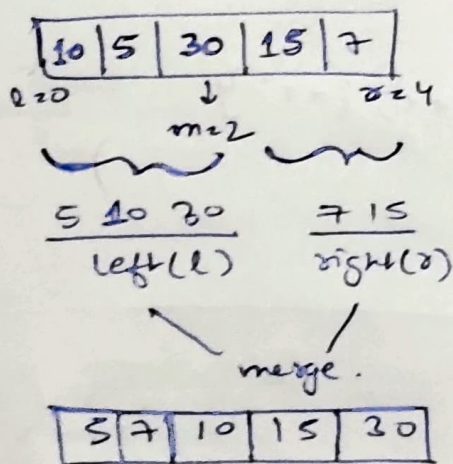 10 5 30 15 7
l=0 ↓ r=4
m=2
5 10 30 7 15
left(l) right(r)
merge.
5 7 10 15 30